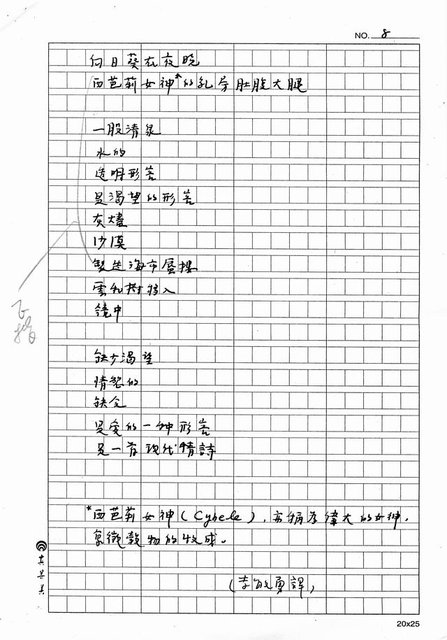 NO. 8
向日葵在夜晚
西芭莉女神*的乳房肚腹大腿
一股清泉
水的
透明形式
是渴望的形式
灰燼
沙漠
製造海市蜃樓
雲和樹将入
鏡中
缺少渴望
情慾的
缺乏
是愛的一种形式
是一首現代情詩
*西芭莉女神(Cybele),亦稱為偉大的女神,
象徵穀物的收成。
(李敏勇譯)
20x25